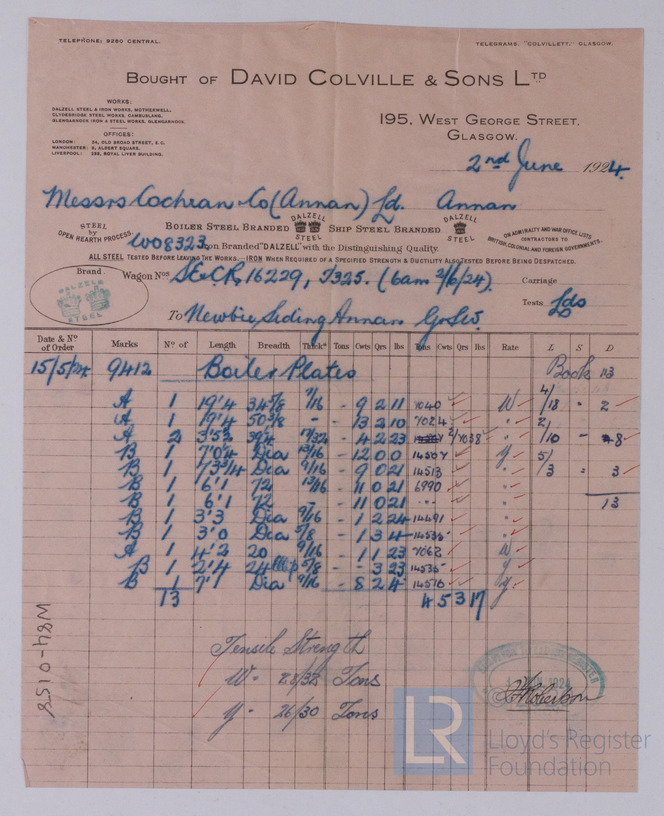 TELEPHONE: 9290 CENTRAL.
TELEGRAMS: "COLVILLETT," GLASGOW.
BOUGHT OF DAVID COLVILLE & SONS LTD
WORKS:
DALZELL STEEL & IRON WORKS, MOTHERWELL.
CLYDEBRIDGE STEEL WORKS, CAMBUSLANG.
GLENGARNOCK IRON & STEEL WORKS, GLENGARNOCK.
OFFICES:
LONDON: 34, OLD BROAD STREET, E.C.
MANCHESTER: 6, ALBERT SQUARE.
LIVERPOOL: ROYAL LIVER BUILDING.
195, WEST GEORGE STREET,
GLASGOW.
2nd June 1924.
Messrs Cochran & Co (Annan) Ld. Annan
STEEL by OPEN HEARTH PROCESS.
BOILER STEEL BRANDED DALZELL STEEL SHIP STEEL BRANDED DALZELL STEEL
ON ADMIRALTY AND WAR OFFICE LISTS
CONTRACTORS TO
BRITISH, COLONIAL AND FOREIGN GOVERNMENTS.
W08323 Iron Branded "DALZELL" with the Distinguishing Quality.
ALL STEEL TESTED BEFORE LEAVING THE WORKS.—IRON WHEN REQUIRED OF A SPECIFIED STRENGTH & DUCTILITY ALSO TESTED BEFORE BEING DESPATCHED.
Brand
DALZELL STEEL
Wagon Nos 16229, (6am 2/6/24).
Carriage
Tests Lds
To Newbie Siding Annan G & S W.
Date & No of Order Marks No of Length Breadth Thick's Tons Cwts Qrs lbs Tons Cwts Qrs lbs Rate L S D
15/5/24 9412 Boiler Plates Book 113
A 1 19'4 34 7/8 9/16 - 9 2 11 7040 W 4/18 - 2
A 1 19'4 50 3/8 - - 13 2 10 7024 "
A 2 3'5 1/2 39 1/4 17/32 - 4 2 23 2/7038 " 2/10 - 8
B 1 7'0 1/4 Dia 13/16 - 12 0 0 14504 Y
B 1 7'3 3/4 Dia 9/16 - 9 0 21 14513 " 5/3 - 3
B 1 6'1 72 13/16 - 11 0 21 6990 "
B 1 6'1 72 - - 11 0 21 " " 13
B 1 3'3 Dia 9/16 - 1 2 24 14491 "
B 1 3'0 Dia 5/8 - 1 3 4 14535 "
A 1 4'2 20 9/16 - 1 1 23 7062 W
B 1 2'4 24 5/8 - - 3 23 14535 Y
B 1 7'1 Dia 9/16 - 8 2 4 14510 Y
13 4 5 3 17
Tensile Strength
W - 28/32 Tons
Y - 26/30 Tons
Robertson
W84-0158
LR Lloyd's Register
Foundation